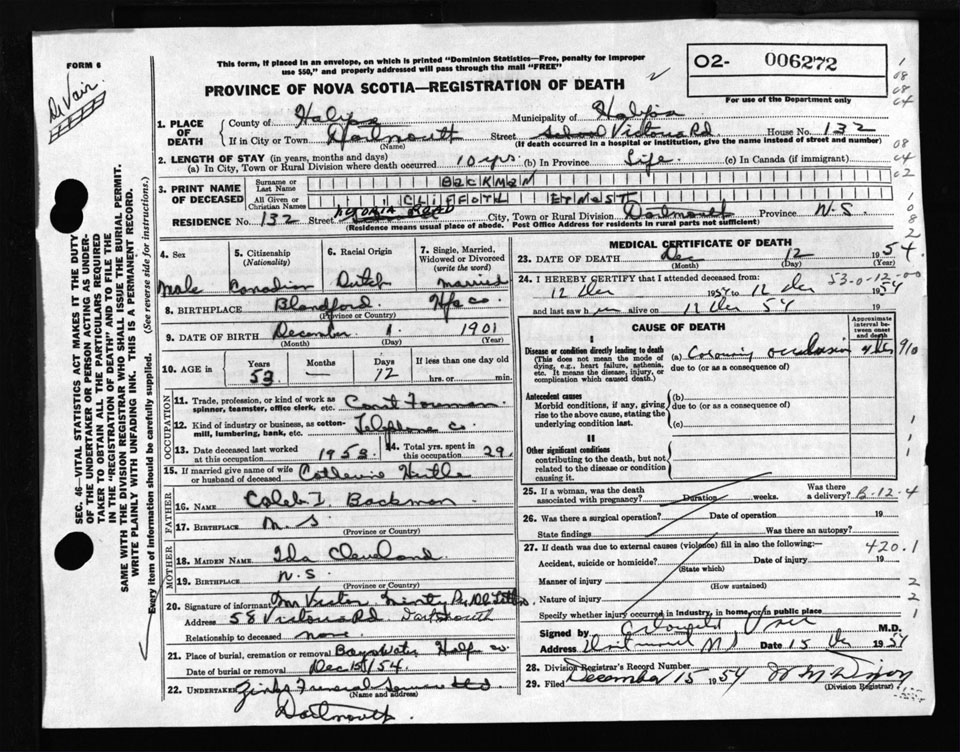 FORM 6
De Vair
This form, if placed in an envelope, on which is printed "Dominion Statistics—Free, penalty for improper
use $50," and properly addressed will pass through the mail "FREE"
PROVINCE OF NOVA SCOTIA—REGISTRATION OF DEATH
O2- 006272
For use of the Department only
1. PLACE OF DEATH
County of Halifax Municipality of Halifax
If in City or Town Dartmouth Street Victoria Rd House No. 132
(Name) (If death occurred in a hospital or institution, give the name instead of street and number)
2. LENGTH OF STAY (in years, months and days)
(a) In City, Town or Rural Division where death occurred 10 yrs. (b) In Province Life. (c) In Canada (if immigrant)
3. PRINT NAME OF DECEASED
Surname or Last Name BACKMAN
All Given or Christian Names CLIFFOTH ERNEST
RESIDENCE No. 132 Street VICTORIA ROAD City, Town or Rural Division Dartmouth Province N.S.
(Residence means usual place of abode. Post Office Address for residents in rural parts not sufficient)
4. Sex Male
5. Citizenship (Nationality) Canadian
6. Racial Origin Dutch
7. Single, Married, Widowed or Divorced (write the word) Married
8. BIRTHPLACE Blandford Hfx Co
(Province or Country)
9. DATE OF BIRTH December 1. 1901
(Month) (Day) (Year)
10. AGE in Years 53 Months — Days 12 If less than one day old
hrs. or min.
OCCUPATION
11. Trade, profession, or kind of work as
spinner, teamster, office clerk, etc. Const Foreman
12. Kind of industry or business, as cotton-
mill, lumbering, bank, etc. Telephone Co.
13. Date deceased last worked at this occupation 1953 14. Total yrs. spent in this occupation 29.
15. If married give name of wife
or husband of deceased Catherine
FATHER
16. NAME Caleb I Backman
17. BIRTHPLACE N.S
(Province or Country)
MOTHER
18. MAIDEN NAME Ida Cleveland
19. BIRTHPLACE N.S
(Province or Country)
20. Signature of informant Mr Victor
Address 58 Victoria Rd. Dartmouth
Relationship to deceased none
21. Place of burial, cremation or removal Bayswater Halfx Co.
Date of burial or removal Dec 15/54
22. UNDERTAKER Zinks Funeral Service Ltd
(Name and address)
Dartmouth.
MEDICAL CERTIFICATE OF DEATH
23. DATE OF DEATH Dec 12 1954
(Month) (Day) (Year)
24. I HEREBY CERTIFY that I attended deceased from: 53-0-12-00
12 Dec 1954 to 12 Dec 1954
and last saw him alive on 12 Dec 54
CAUSE OF DEATH
Approximate interval between onset and death
I
Disease or condition directly leading to death (a) Coronary occlusion
(This does not mean the mode of
dying, e.g., heart failure, asthenia,
etc. It means the disease, injury, or
complication which caused death.)
due to (or as a consequence of)
Antecedent causes (b)
Morbid conditions, if any, giving
rise to the above cause, stating the
underlying condition last.
due to (or as a consequence of)
(c)
II
Other significant conditions
contributing to the death, but not
related to the disease or condition
causing it.
25. If a woman, was the death
associated with pregnancy? Duration weeks. Was there
a delivery? B-12-4
26. Was there a surgical operation? Date of operation 19
State findings Was there an autopsy?
27. If death was due to external causes (violence) fill in also the following:— 420.1
Accident, suicide or homicide? Date of injury 19
(State which)
Manner of injury
(How sustained)
Nature of injury
Specify whether injury occurred in industry, in home, or in public place
Signed by M.D.
Address Dartmouth NS Date 15 Dec 1954
28. Division Registrar's Record Number
29. Filed December 15 1954
(Division Registrar)
SEC. 46—VITAL STATISTICS ACT MAKES IT THE DUTY
OF THE UNDERTAKER OR PERSON ACTING AS UNDER-
TAKER TO OBTAIN ALL THE PARTICULARS REQUIRED
IN THE "REGISTRATION OF DEATH" AND TO FILE THE
SAME WITH THE DIVISION REGISTRAR WHO SHALL ISSUE THE BURIAL PERMIT.
WRITE PLAINLY WITH UNFADING INK. THIS IS A PERMANENT RECORD.
Every item of information should be carefully supplied. (See reverse side for instructions.)